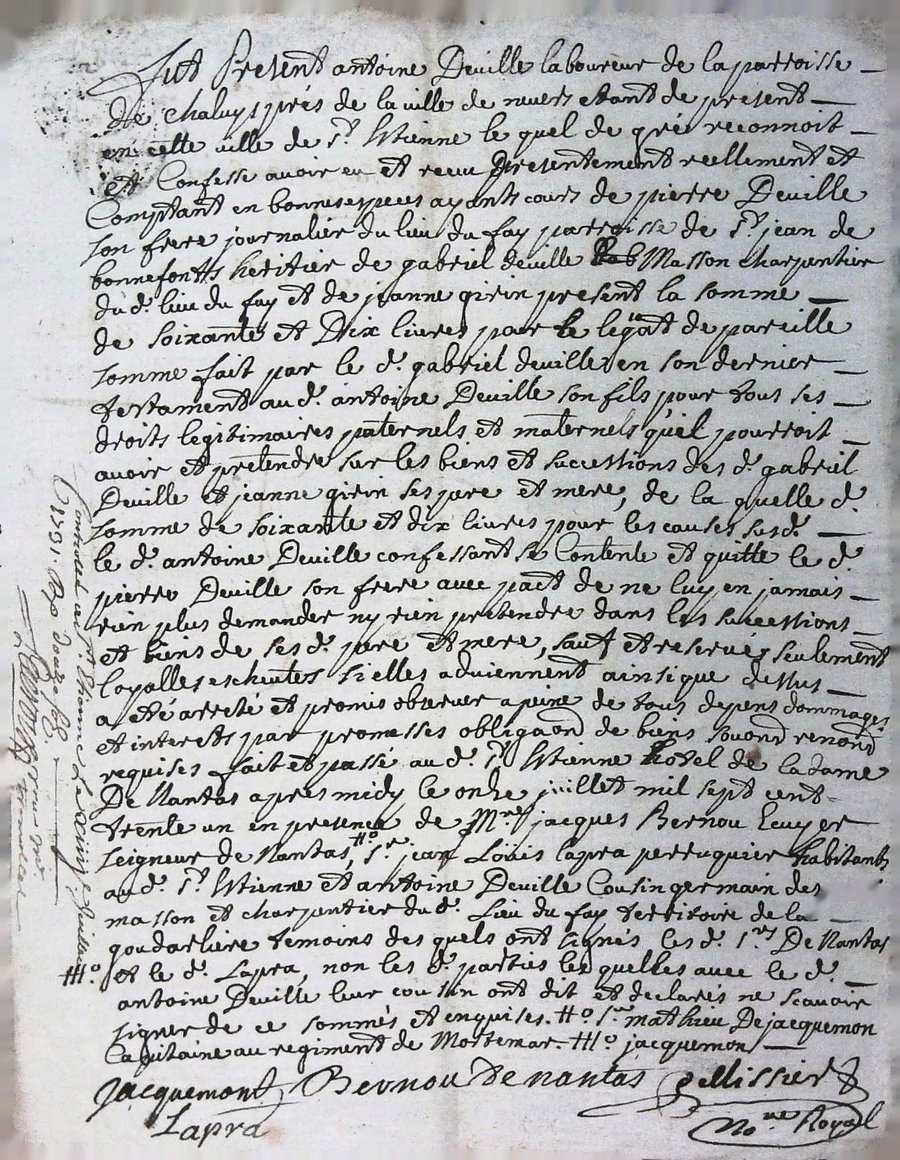 fut Present antoine Deville laboureur de la parroisse
de chaluys prés de la ville de nevers etant de present
en cette ville de st. Estienne le quel de gré reconnoit
et Confesse avoir eu et receu presentement reellement et
Comptant en bonnes especes ayants cours de pierre Deville
son frere journalier du lieu du fay parroisse de st. jean de
bonnefonts heritier de gabriel deville Masson charpentier
du d. lieu du fay et de jeanne girin present la somme
de soixante et Dix livres pour le legat de pareille
somme fait par le d. gabriel deville en son dernier
testament au d. antoine Deville son fils pour tous ses
droits legitimaires paternels et maternels qu'el pourroit
avoir et pretendre sur les biens et successions des d. gabriel
Deville et jeanne girin ses pere et mere, de la quelle d.
somme de soixante et dix livres pour les causes susd.
le d. antoine Deville confessant se Contente et quitte le d.
pierre Deville son frere avec pact de ne luy en jamais
rien plus demander ny rien pretendre dans les successions
et biens de ses d. pere et mere, sauf et reservé seulement
loyalles escheutes si elles adviennent ainsi que dessus
a eté arreté et promis observer a peine de tous depens dommages
et interests par promesses obligaon de biens soumons renons
requises fait et passé au d. st. Estienne hotel de la dame
De Nantas apres midy le onze juillet mil sept cent
trente un en presence de Mre jacques Bernou Ecuyer
seigneur de Nantas, #o sr. jean Louis lapra perruquier habitants
au d. st. Estienne et antoine Deville Cousin germain des
masson et charpentier du d. Lieu du fay territoire de la
goudarliere temoins des quels ont signés les d. srs De Nantas
#o et le d. Lapra, non les d. parties les quelles avec le d.
antoine Deville leur cousin ont dit et declarés ne scavoir
signer de ce sommés et enquises. #o sr. mathieu De jacquemon
Capitaine au regiment de Mortemar #o jacquemon
Jacquemont Bernou De nantas pellissier
Lapra Nore Royal
Controlé a st. Etienne le onze juillet
1731. Reçu douze sols